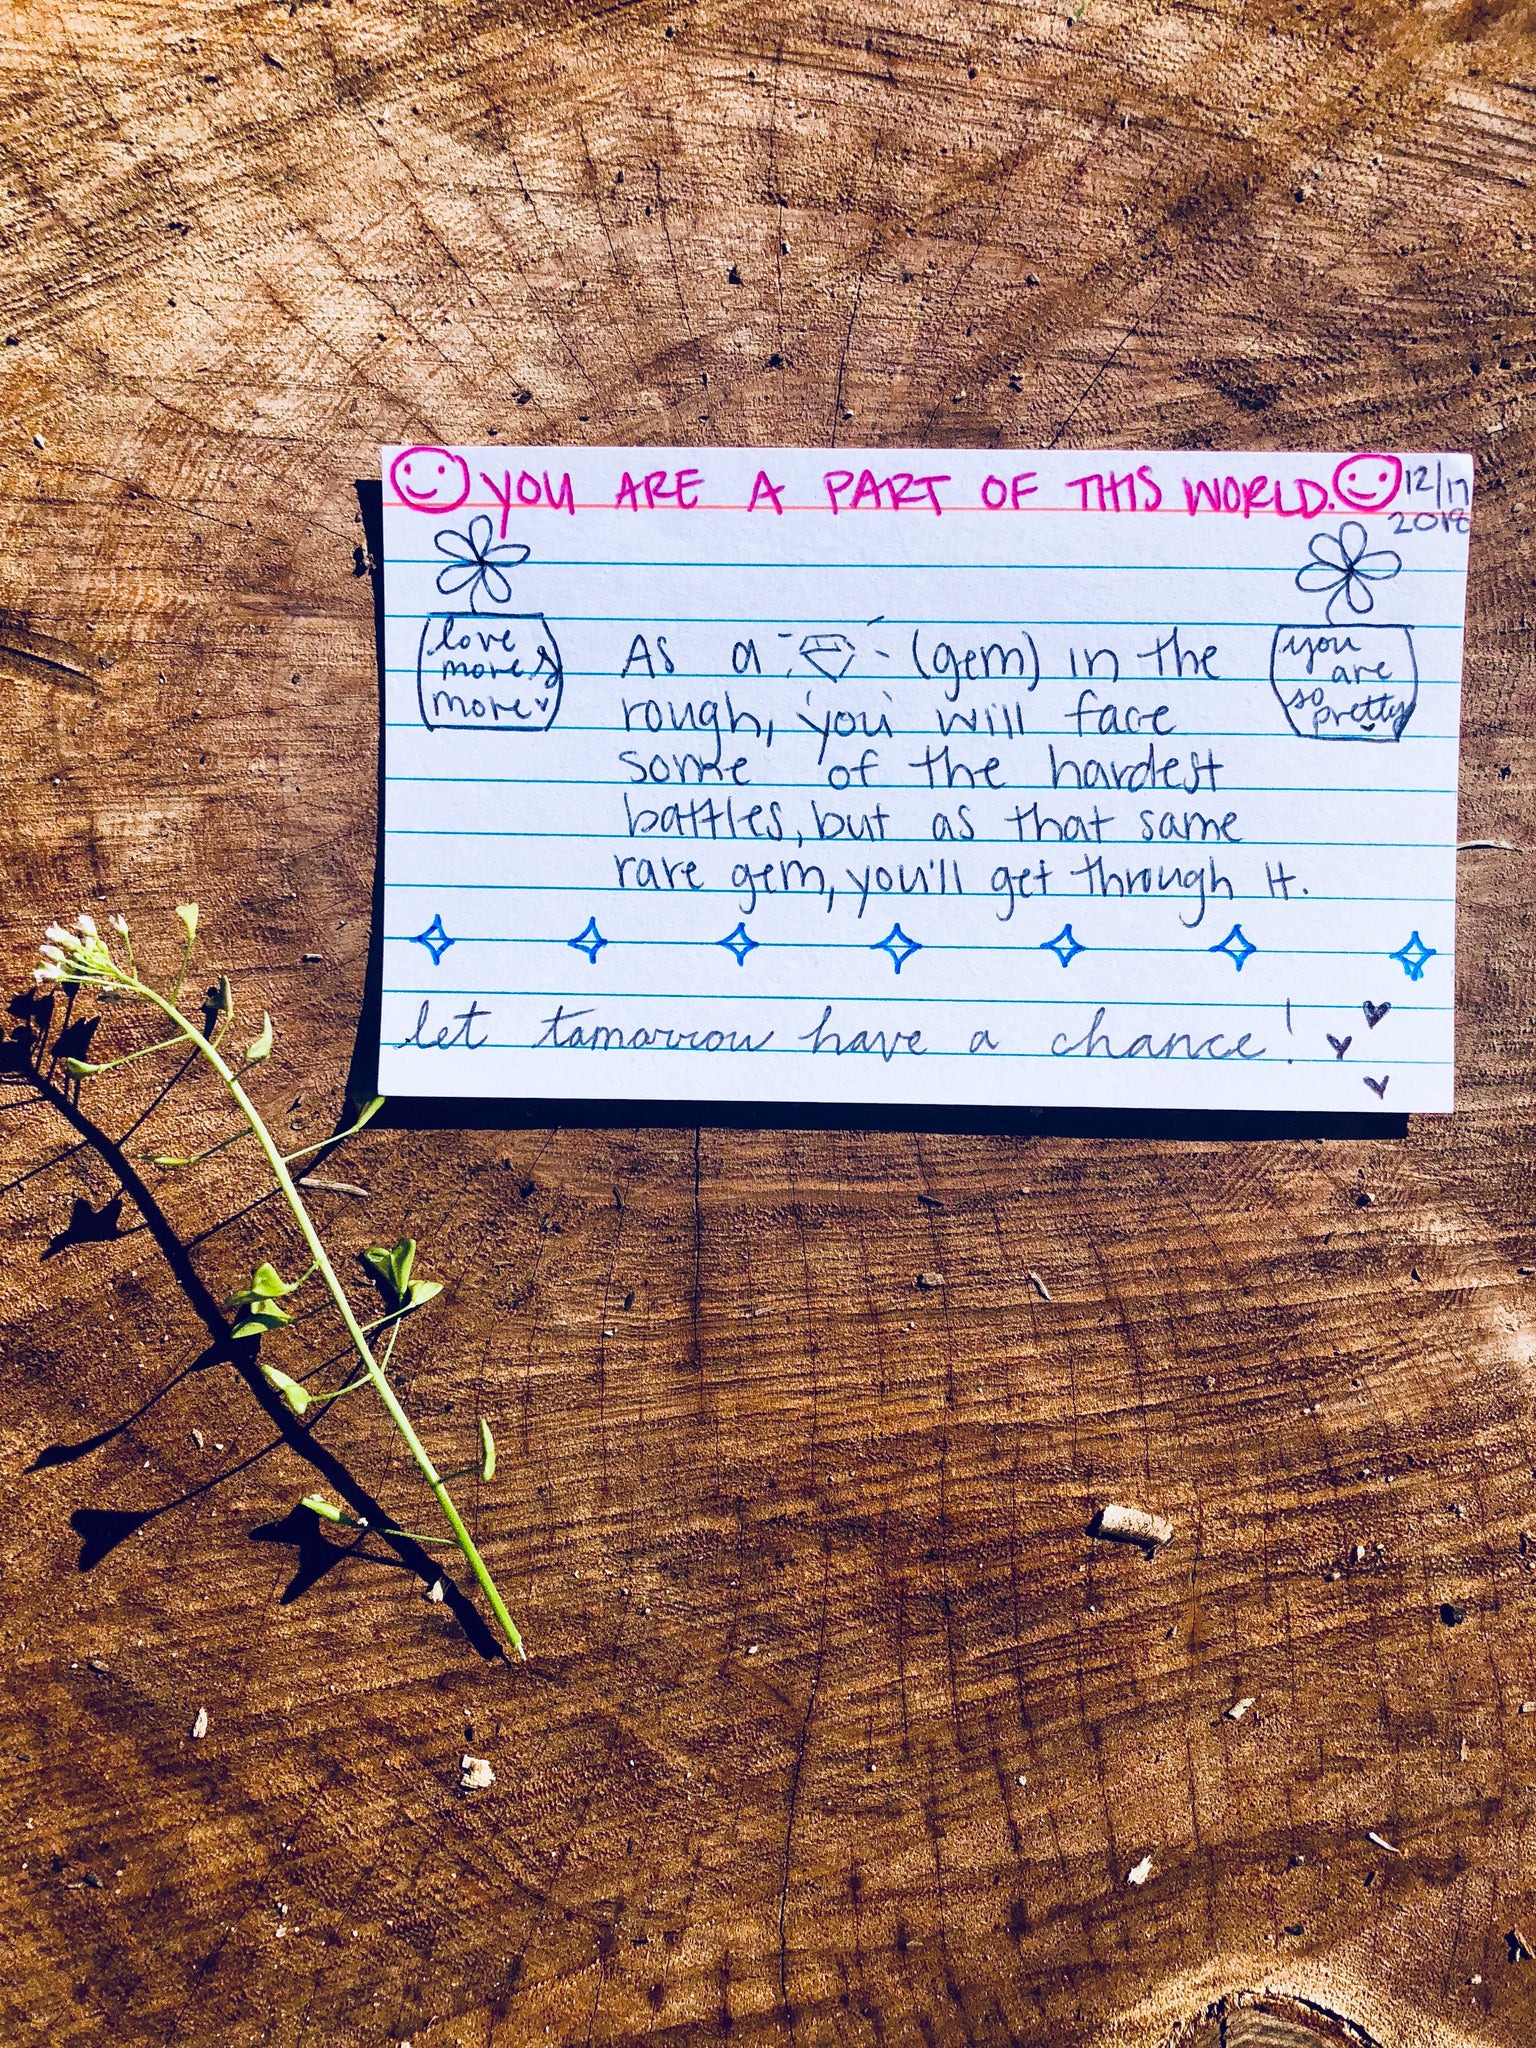 YOU ARE A PART OF THIS WORLD.
12/17
2018
love
more &
more
you
are
so
pretty
As a (gem) in the
rough, you will face
some of the hardest
battles, but as that same
rare gem, you'll get through it.
let tomorrow have a chance!